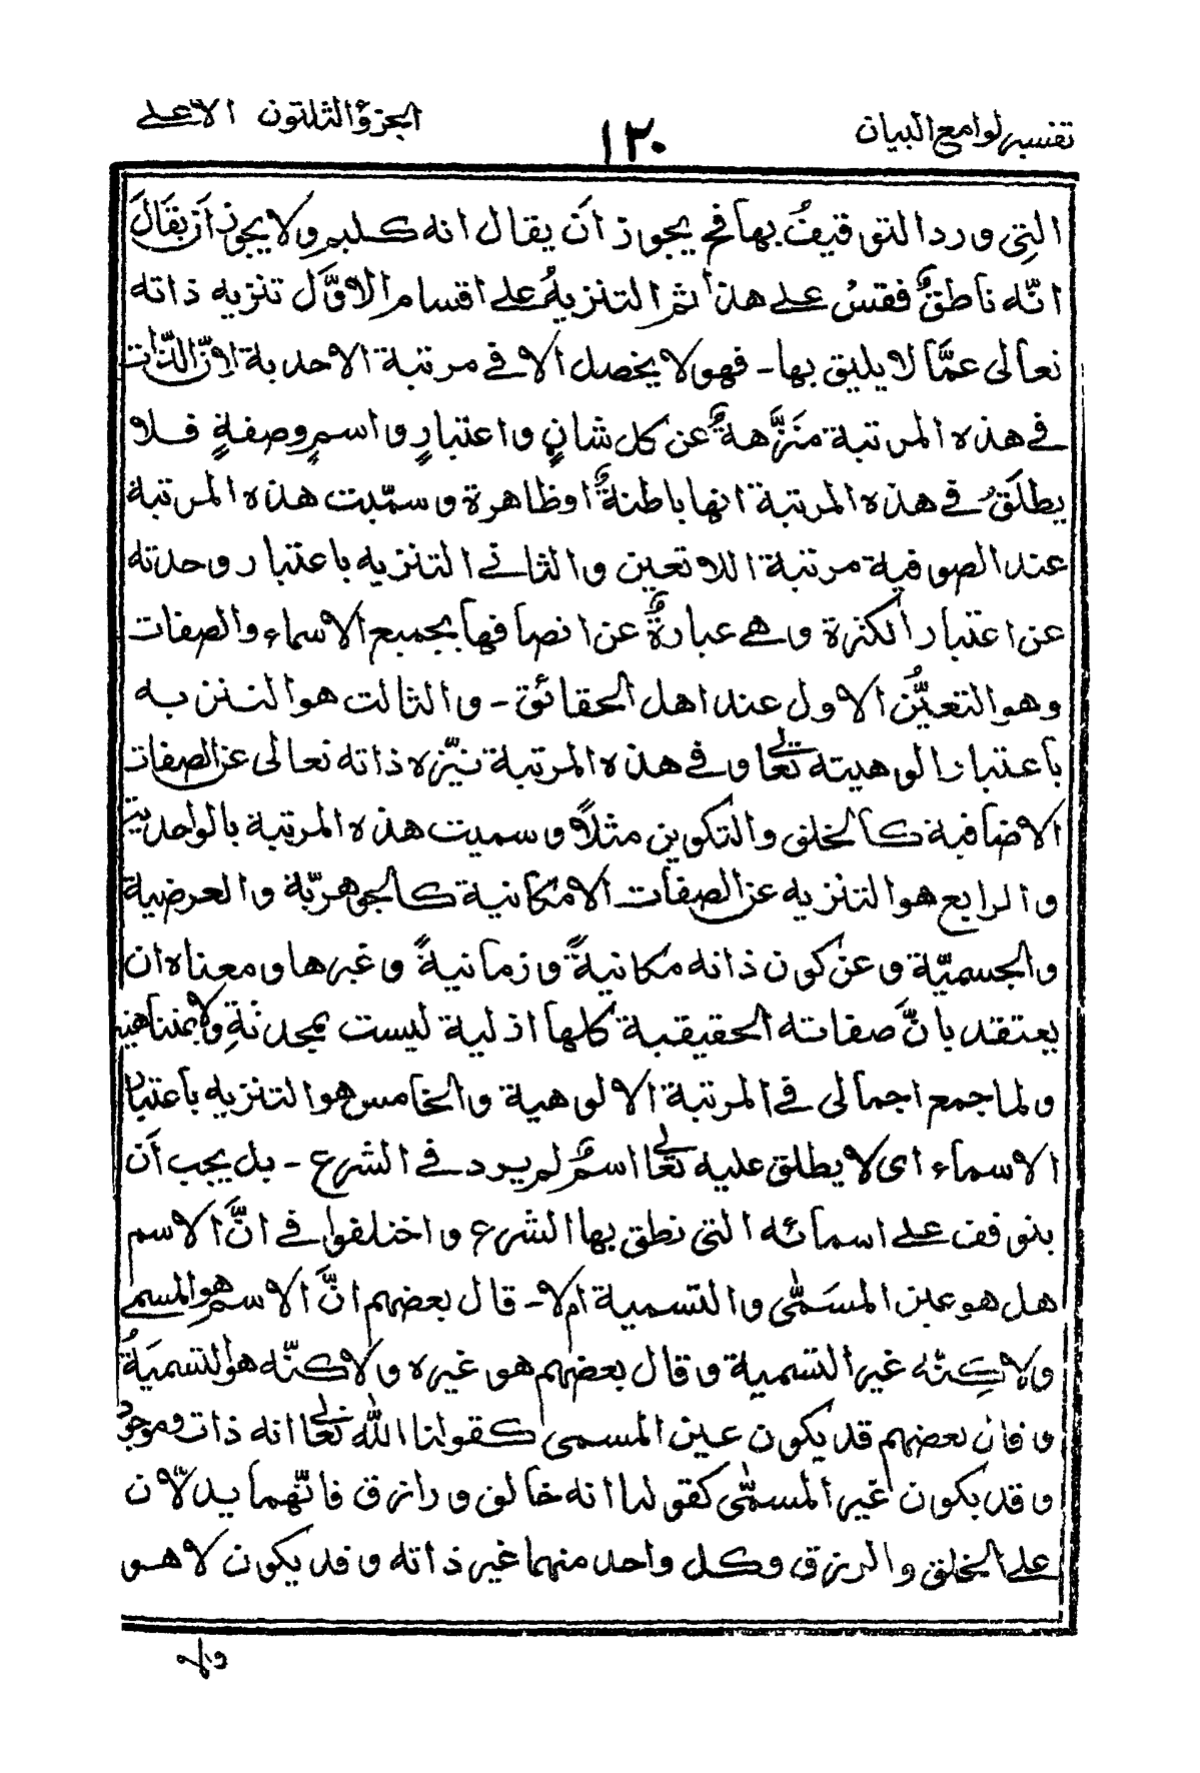 تفسير لوامع البيان ١٢٠ الجزؤ الثلثون الاعلى
التِى ورد التوقيفُ بها فح يجوز اَن يقال انه كليم ولا يجوز اَن يقَالَ
انّه ناطقٌ فقسْ على هذا ثم التنزيهُ على اقسام الاوَّل تنزيه ذاته
تعالى عمَّا لا يليق بها - فهو لا يحصل الا فى مرتبة الاحدية لانَّ الذّات
فى هذه المرتبة منَزَّهةٌ عن كل شانٍ واعتبارٍ واسمٍ وصفةٍ فلا
يطلَقُ فى هذه المرتبة انها باطنةٌ اوظاهرة وسمّيت هذه المرتبة
عند الصوفية مرتبة اللاتعين والثانى التنزيه باعتبار وحدته
عن اعتبار الكثرة وهى عبارةٌ عن اتصافها بجميع الاسماء والصفات
وهو التعيُّن الاول عند اهل الحقائق - والثالث هو التنزيه
باعتبار الوهيته تعالى وفى هذه المرتبة نيّزه ذاته تعالى عن الصفات
الاضافية كالخلق والتكوين مثلاً وسميت هذه المرتبة بالواحدية
والرابع هو التنزيه عن الصفات الامكانية كالجوهريّة والعرضية
والجسميّة وعن كون ذاته مكانيةً وزمانيةً وغيرها ومعناه ان
يعتقد بانَّ صفاته الحقيقية كلها ازلية ليست بمحدثةٍ ولا بمتناهية
ولما جمع اجمالى فى المرتبة الالوهية والخامس هو التنزيه باعتبار
الاسماء اى لا يطلق عليه تعالى اسمٌ لم يرد فى الشرع - بل يجب اَن
يتوقف على اسمائه التى نطق بها الشرع واختلفوا فى انَّ الاسم
هل هو عين المسَمّٰى والتسمية ام لا - قال بعضهم انَّ الاسم هو المسمى
ولاكِنّه غير التسمية وقال بعضهم هو غيره ولاكنّه هو التسميَةُ
وقال بعضهم قد يكون عين المسمى كقولنا الله تعالى انه ذات وموجودٌ
وقد يكون غير المسمّٰى كقولنا انه خالق ورازق فانّهما يدلّان
على الخلق والرزق وكل واحد منهما غير ذاته وقد يكون لا هو
ولا